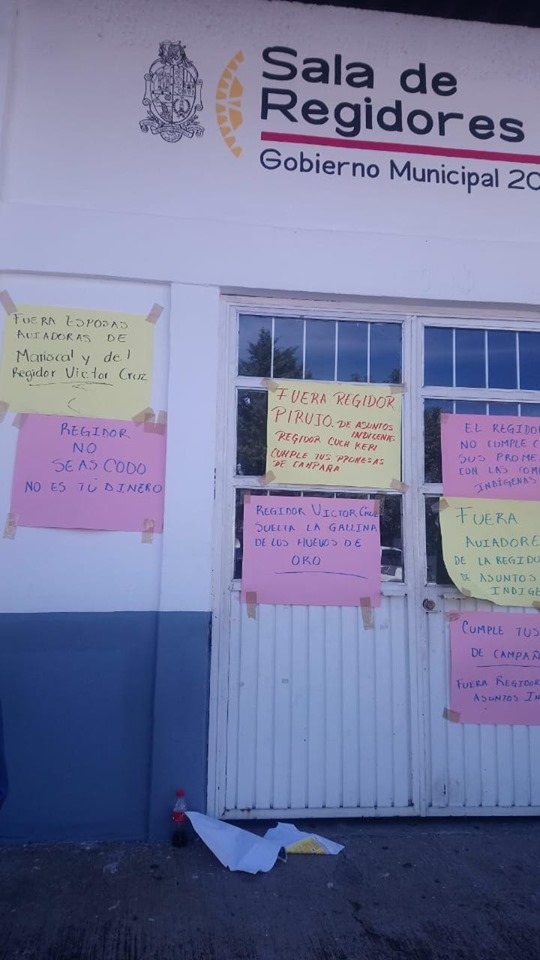 Sala de
Regidores
Gobierno Municipal 20
FUERA ESPOSAS
AVIADORAS DE
Mariscal y del
Regidor VICTOR CRUZ
REGIDOR
NO
SEAS CODO
NO ES TÚ DINERO
FUERA REGIDOR
PIRUJO. DE ASUNTOS
INDIGENAS
REGIDOR CUCH KERI
CUMPLE TUS PROMESAS
DE CAMPAÑA
REGIDOR VICTOR CRUZ
SUELTA LA GALLINA
DE LOS HUEVOS DE
ORO
EL REGIDO
NO CUMPLE C
SUS PROME
CON LAS COM
INDÍGENAS
FUERA
AVIADORE
DE LA REGIDU
DE ASUNTOS
INDIGE
CUMPLE TUS
DE CAMPAÑ
FUERA REGIDOR
ASUNTOS IN